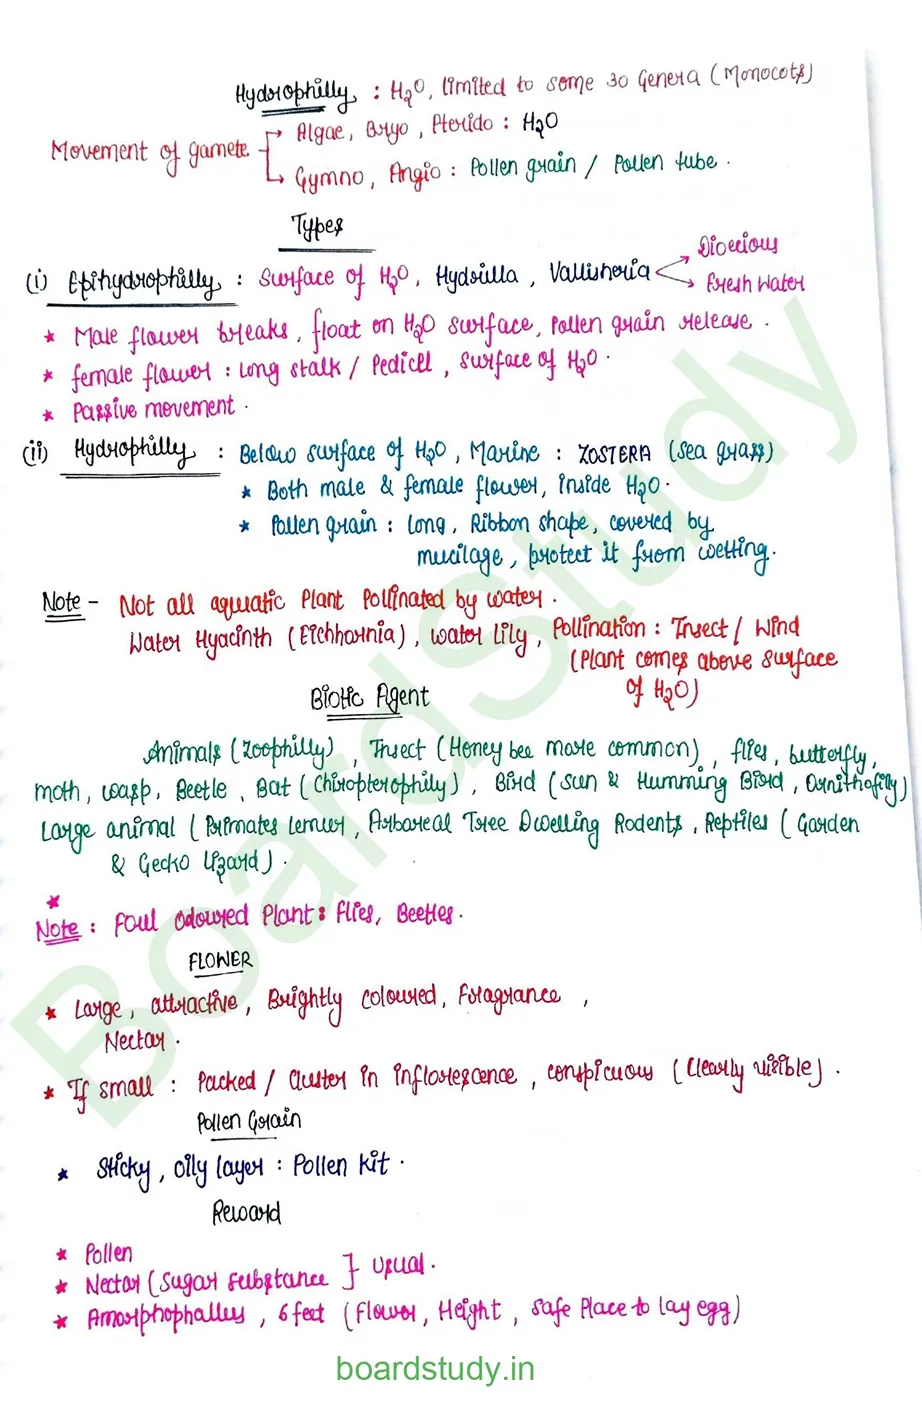 Hydrophilly : H₂O, limited to some 30 Genera (Monocots)
Movement of gamete
Algae, Bryo, Pterido : H₂O
Gymno, Angio : Pollen grain / Pollen tube.
Types
(i) Epihydrophilly : Surface of H₂O, Hydrilla, Vallisneria
Dioecious
Fresh Water
* Male flower breaks, float on H₂O surface, Pollen grain release.
* female flower : long stalk / Pedicell, surface of H₂O.
* Passive movement.
(ii) Hydrophilly : Below surface of H₂O, Marine : ZOSTERA (Sea grass)
* Both male & female flower, inside H₂O.
* Pollen grain : long, Ribbon shape, covered by
mucilage, protect it from wetting.
Note - Not all aquatic Plant Pollinated by water.
Water Hyacinth (Eichhornia), water lily, Pollination : Insect / Wind
(Plant comes above surface
of H₂O)
Biotic Agent
Animals (Zoophilly), Insect (Honey bee more common), flies, butterfly,
moth, wasp, Beetle, Bat (Chiropterophily), Bird (Sun & Humming Bird, Ornithofily)
Large animal (Primates lemur, Arboreal Tree Dwelling Rodents, Reptiles (Garden
& Gecko lizard).
*
Note : Foul odoured Plant : Flies, Beetles.
FLOWER
* Large, attractive, Brightly coloured, Fragrance,
Nectar.
* If small : Packed / cluster in inflorescence, conspicuous (Clearly visible).
Pollen Grain
* Sticky, oily layer : Pollen kit.
Reward
* Pollen
* Nectar (Sugar substance } usual.
* Amorphophallus, 6 feet (Flower, Height, safe Place to lay egg)
BoardStudy
boardstudy.in